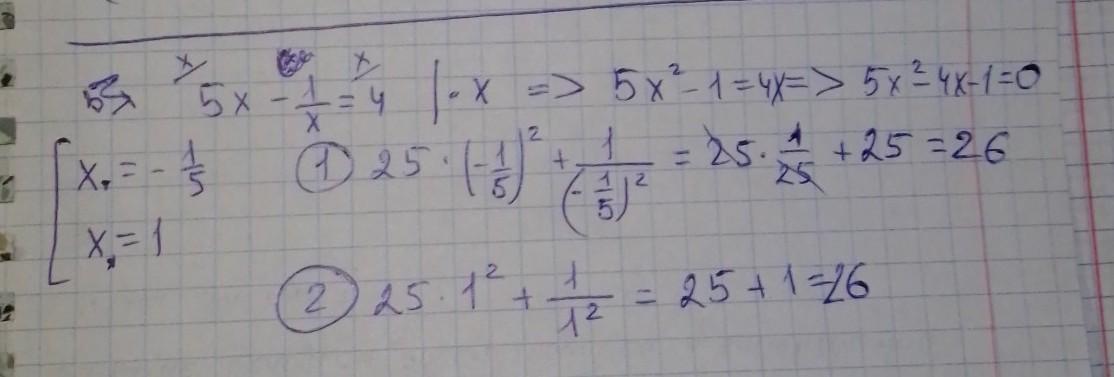 5x - 1/x = 4 | · x => 5x² - 1 = 4x => 5x² - 4x - 1 = 0
[ x = -1/5 ① 25 · (-1/5)² + 1/(-1/5)² = 25 · 1/25 + 25 = 26
x = 1
② 25 · 1² + 1/1² = 25 + 1 = 26